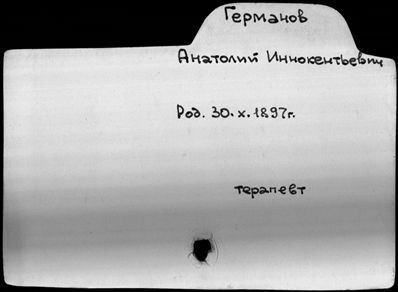 Германов
Анатолий Иннокентьевич
Род. 30.X.1897г.
терапевт